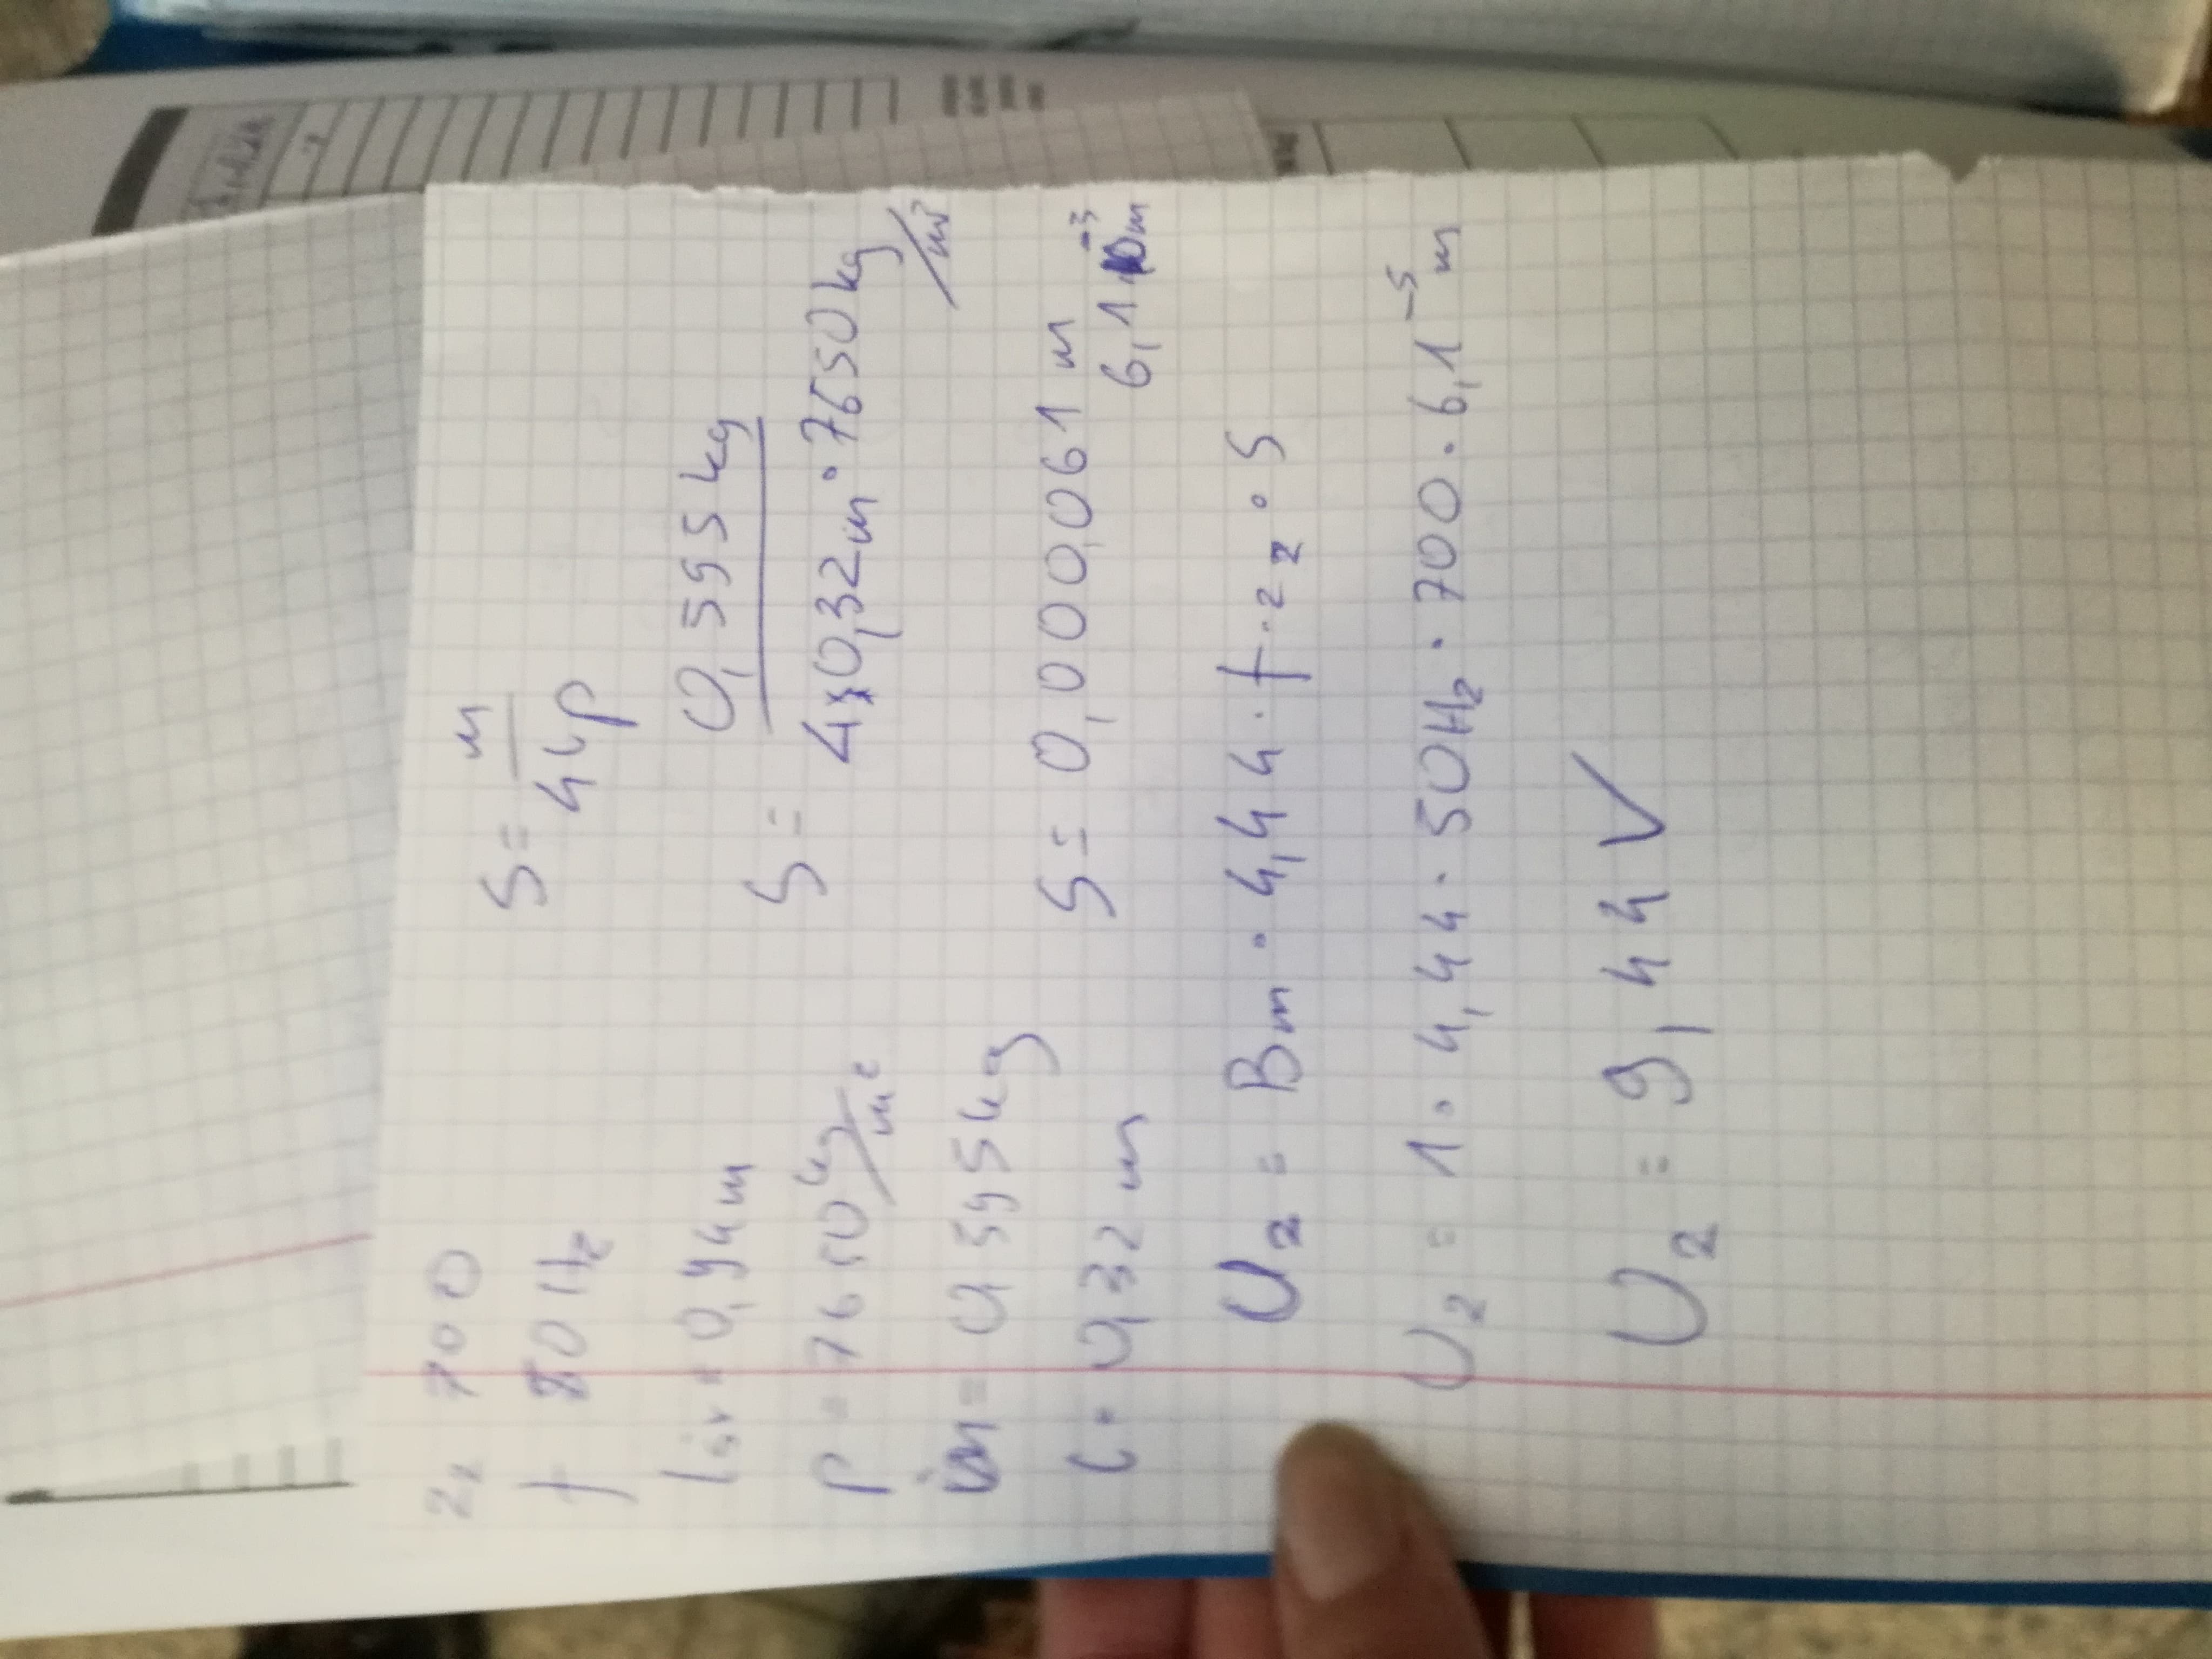 z₂ 700
f 50 Hz
lśr = 0,94 m
ρ = 7650 kg/m³
m = 0,595 kg
l = 0,32 m
S = m / 4lρ
S = 0,595 kg / 4·0,32 m · 7650 kg/m³
S = 0,000061 m
6,1·10⁻³ m
U₂ = Bm · 4,44 · f · z₂ · S
U₂ = 1 · 4,44 · 50Hz · 700 · 6,1⁻⁵ m
U₂ = 9,44 V